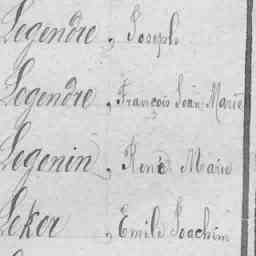 Legendre, Joseph
Legendre, François Jean Marie
Legenin, René Marie
Leker, Emile Joachim